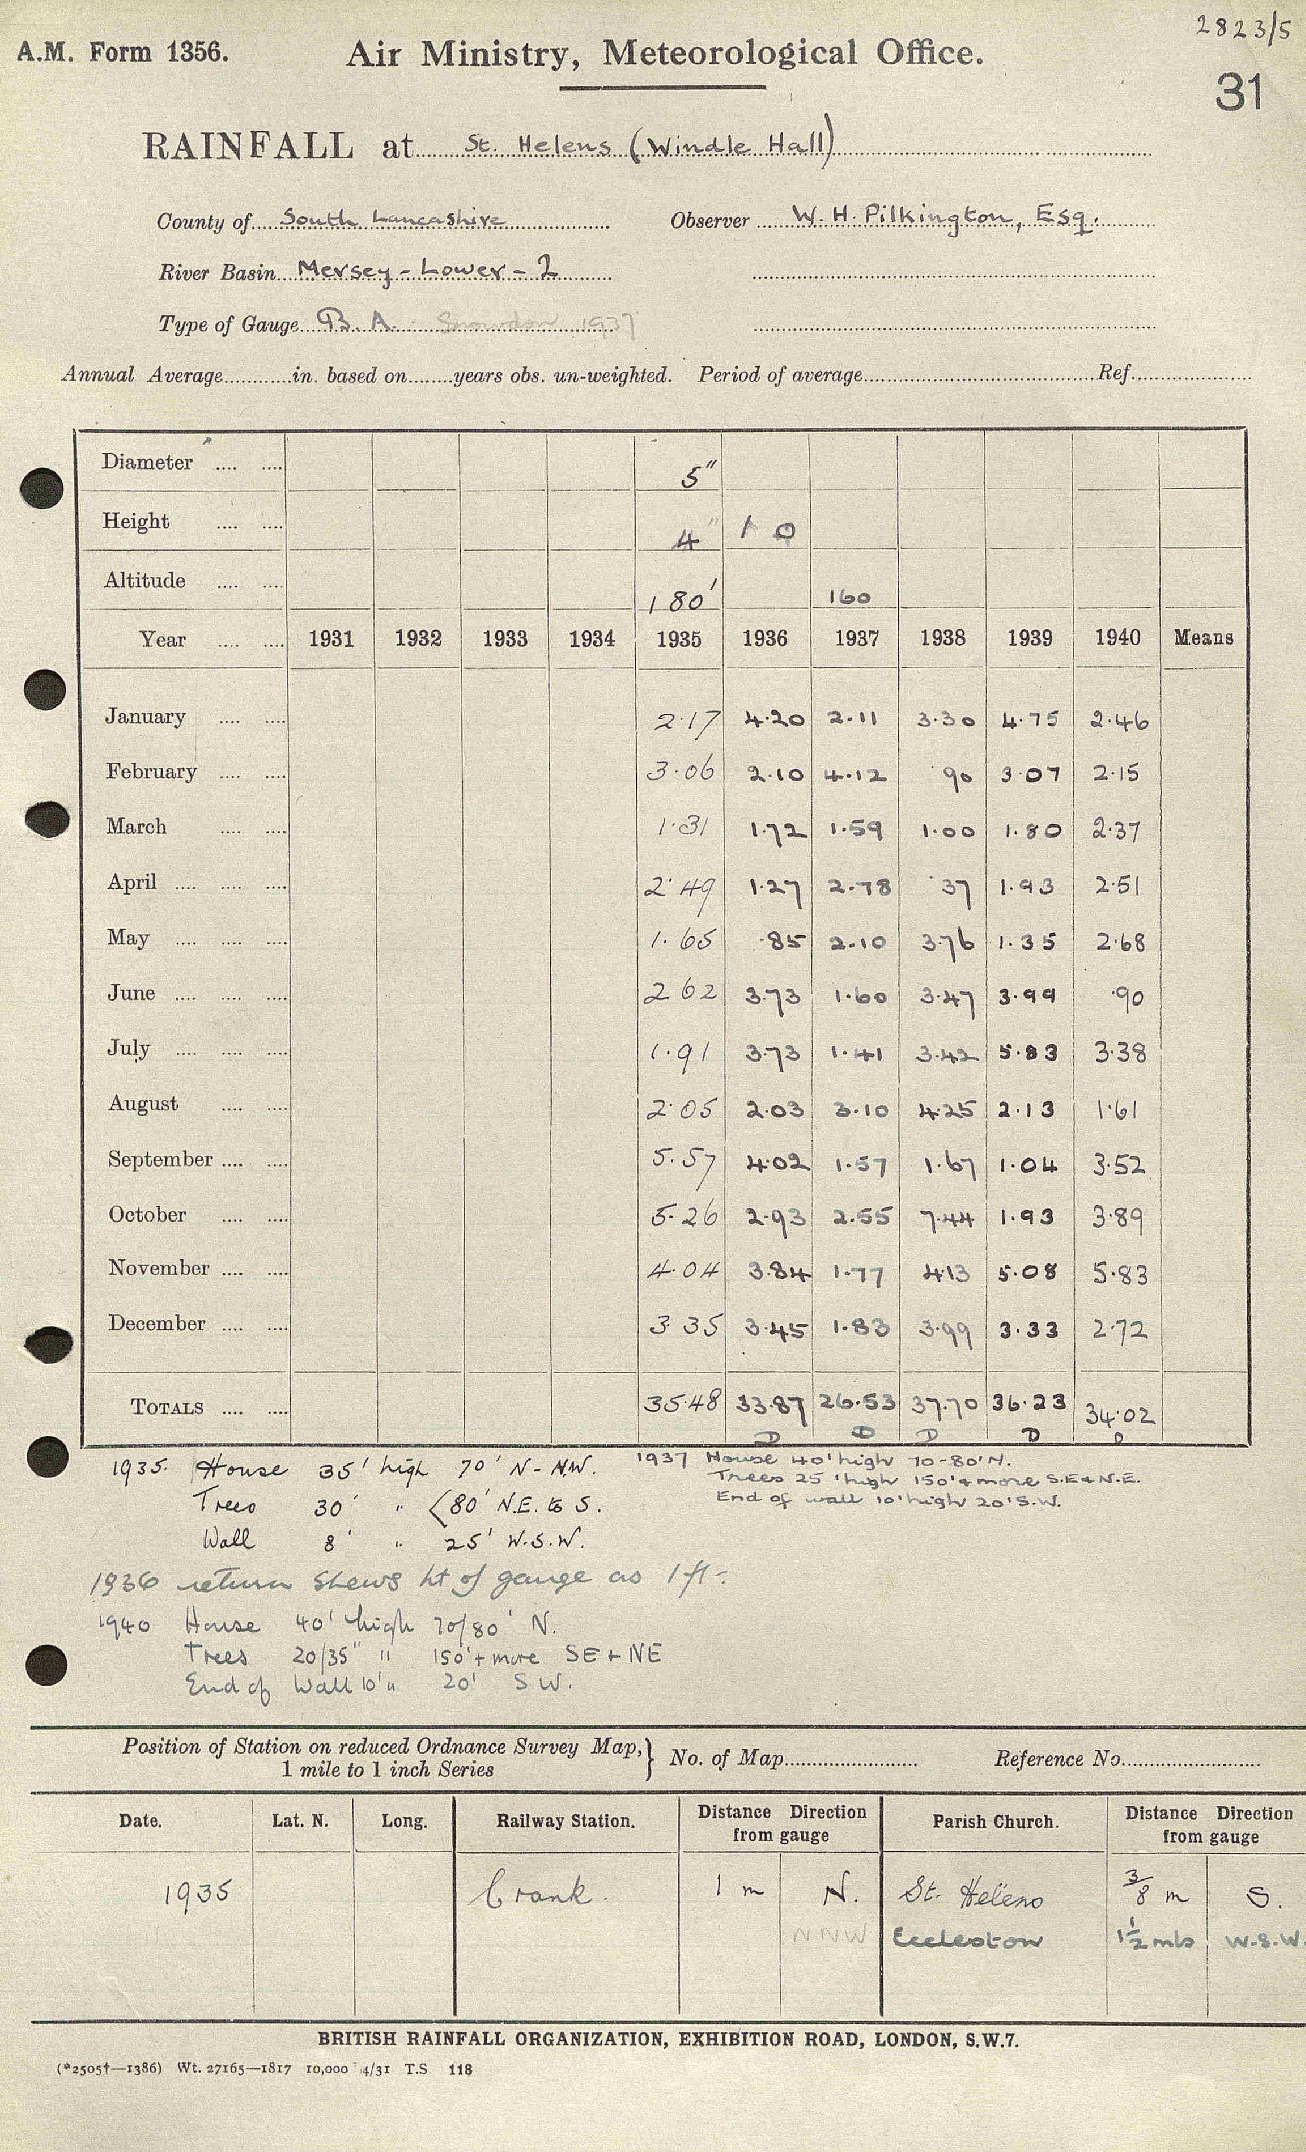 2823/5
A.M. Form 1356. Air Ministry, Meteorological Office.
31
RAINFALL at St. Helens (Windle Hall)
County of South Lancashire Observer W. H. Pilkington, Esq.
River Basin Mersey - Lower - 2
Type of Gauge B. A. Snowdon 1937
Annual Average in. based on years obs. un-weighted. Period of average Ref.
Diameter 5"
Height 4" 1 0
Altitude 180' 160
Year 1931 1932 1933 1934 1935 1936 1937 1938 1939 1940 Means
January 2.17 4.20 2.11 3.30 4.75 2.46
February 3.06 2.10 4.12 .90 3.07 2.15
March 1.31 1.72 1.59 1.00 1.80 2.37
April 2.49 1.27 2.78 .37 1.93 2.51
May 1.65 .85 2.10 3.76 1.35 2.68
June 2.62 3.73 1.60 3.47 3.99 .90
July 1.91 3.73 1.41 3.42 5.83 3.38
August 2.05 2.03 3.10 4.25 2.13 1.61
September 5.57 4.02 1.57 1.67 1.04 3.52
October 5.26 2.93 2.55 7.44 1.93 3.89
November 4.04 3.84 1.77 4.13 5.08 5.83
December 3.35 3.45 1.83 3.99 3.33 2.72
TOTALS 35.48 33.87 26.53 37.70 36.23 34.02
D D D D D
1935. House 35' high 70' N - N.W. 1937 House 40' high 70-80' N.
Trees 25' high 150' + more S.E + N.E.
Trees 30' " <80' N.E. to S. End of wall 10' high 20' S.W.
Wall 8' " 25' W.S.W.
1936 return shews ht of gauge as 1 ft.
1940 House 40' high 70/80' N.
Trees 20/35" " 150' + more SE + NE
End of Wall 10' " 20' S W.
Position of Station on reduced Ordnance Survey Map, } No. of Map Reference No.
1 mile to 1 inch Series
Date. Lat. N. Long. Railway Station. Distance Direction from gauge Parish Church. Distance Direction from gauge
1935 Crank. 1 m N. St. Helens 3/8 m S.
NNW Eccleston 1 1/2 mls W.S.W.
BRITISH RAINFALL ORGANIZATION, EXHIBITION ROAD, LONDON, S.W.7.
(*2505†—1386) Wt. 27165—1817 10,000 4/31 T.S 118